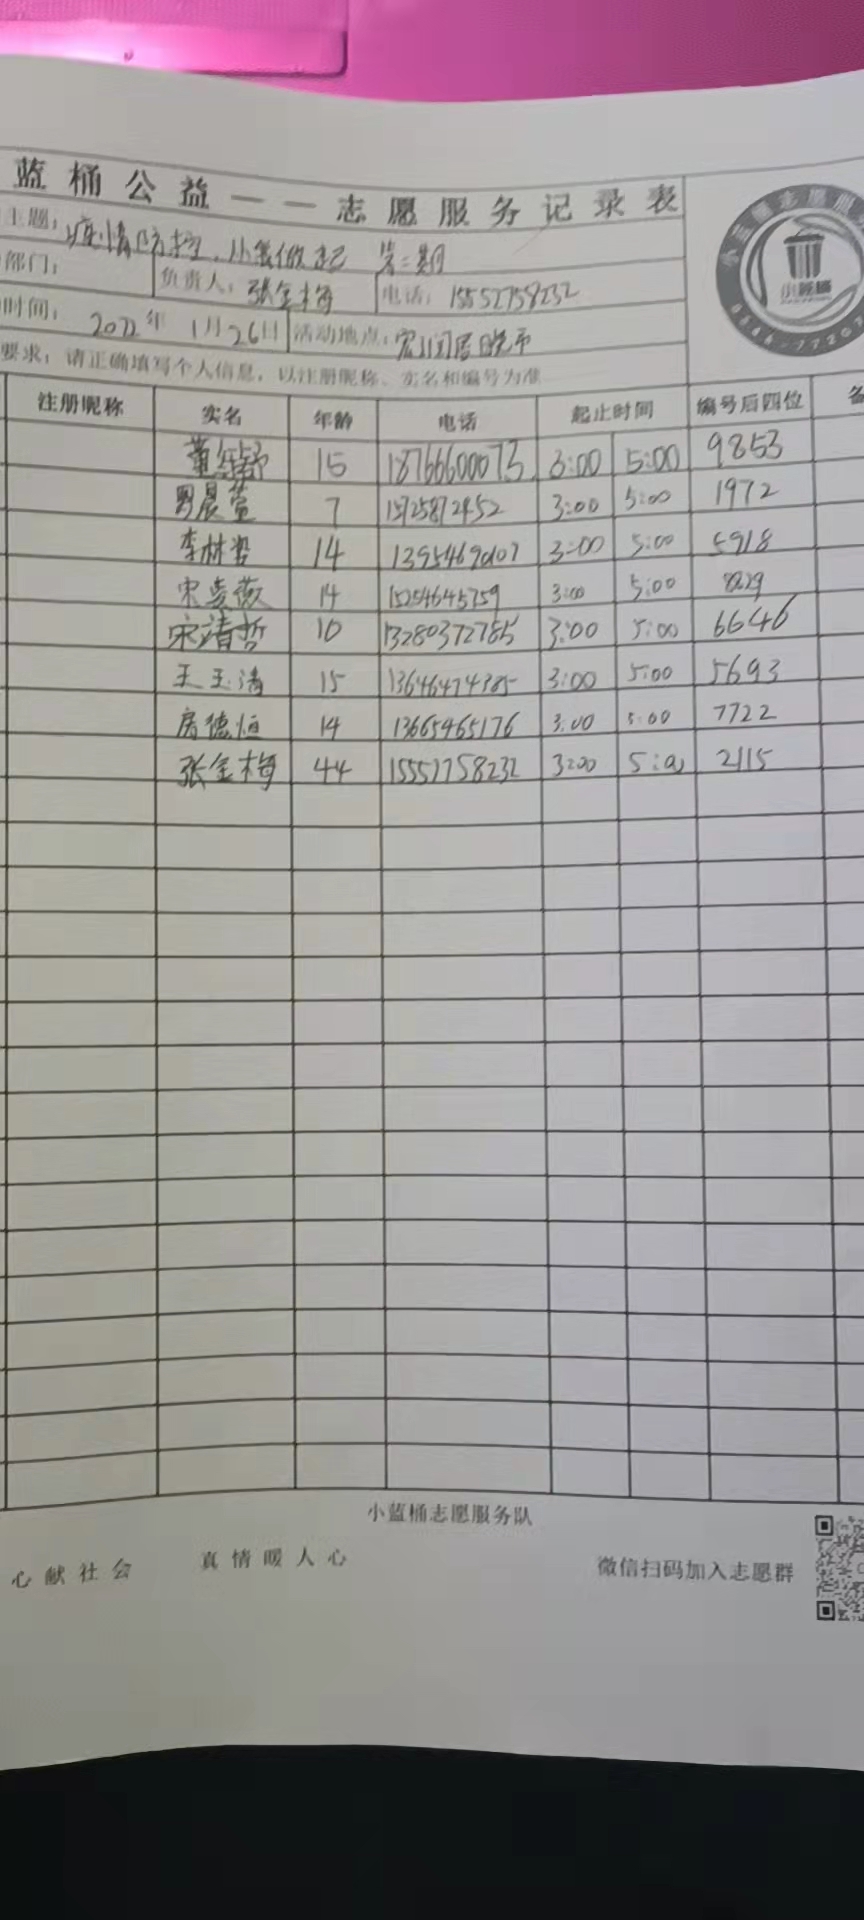 蓝桶公益——志愿服务记录表
主题：疫情防控，从我做起 第二期
部门： 负责人：张金梅 电话：15552758232
时间：2022年1月26日 活动地点：
要求：请正确填写个人信息，以注册昵称、实名和编号为准
注册昵称 实名 年龄 电话 起止时间 编号后四位
董 15 18766600073 3:00 5:00 9853
晨萱 7 15725872452 3:00 5:00 1972
李林 14 3:00 5:00 5918
宋 薇 14 15254645759 3:00 5:00 8229
宋清哲 10 13280372785 3:00 5:00 6646
王玉涛 15 13646474385 3:00 5:00 5693
房德恒 14 13665465176 3:00 5:00 7722
张金梅 44 15552758232 3:00 5:00 2115
小蓝桶志愿服务队
心献社会 真情暖人心 微信扫码加入志愿群
小蓝桶志愿服
小蓝桶
0546-77207